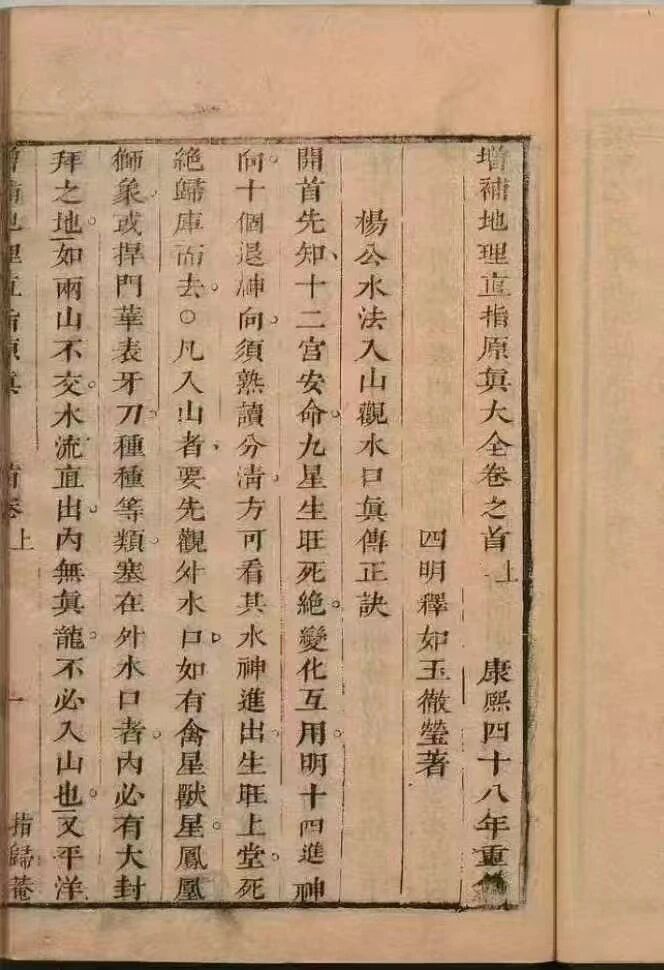 增補地理直指原眞大全卷之首上 康熙四十八年重
四明釋如玉徹瑩著
楊公水法入山觀水口眞傳正訣
開首先知十二宮安命九星生旺死絶變化互用明十四進神
向十個退神向須熟讀分淸方可看其水神進出生旺上堂死
絶歸庫而去○凡入山者要先觀外水口如有禽星獸星鳳凰
獅象或捍門華表牙刀種種等類塞在外水口者內必有大封
拜之地如兩山不交水流直出內無眞龍不必入山也又平洋
增補地理直指原眞 首卷上 一 指歸菴